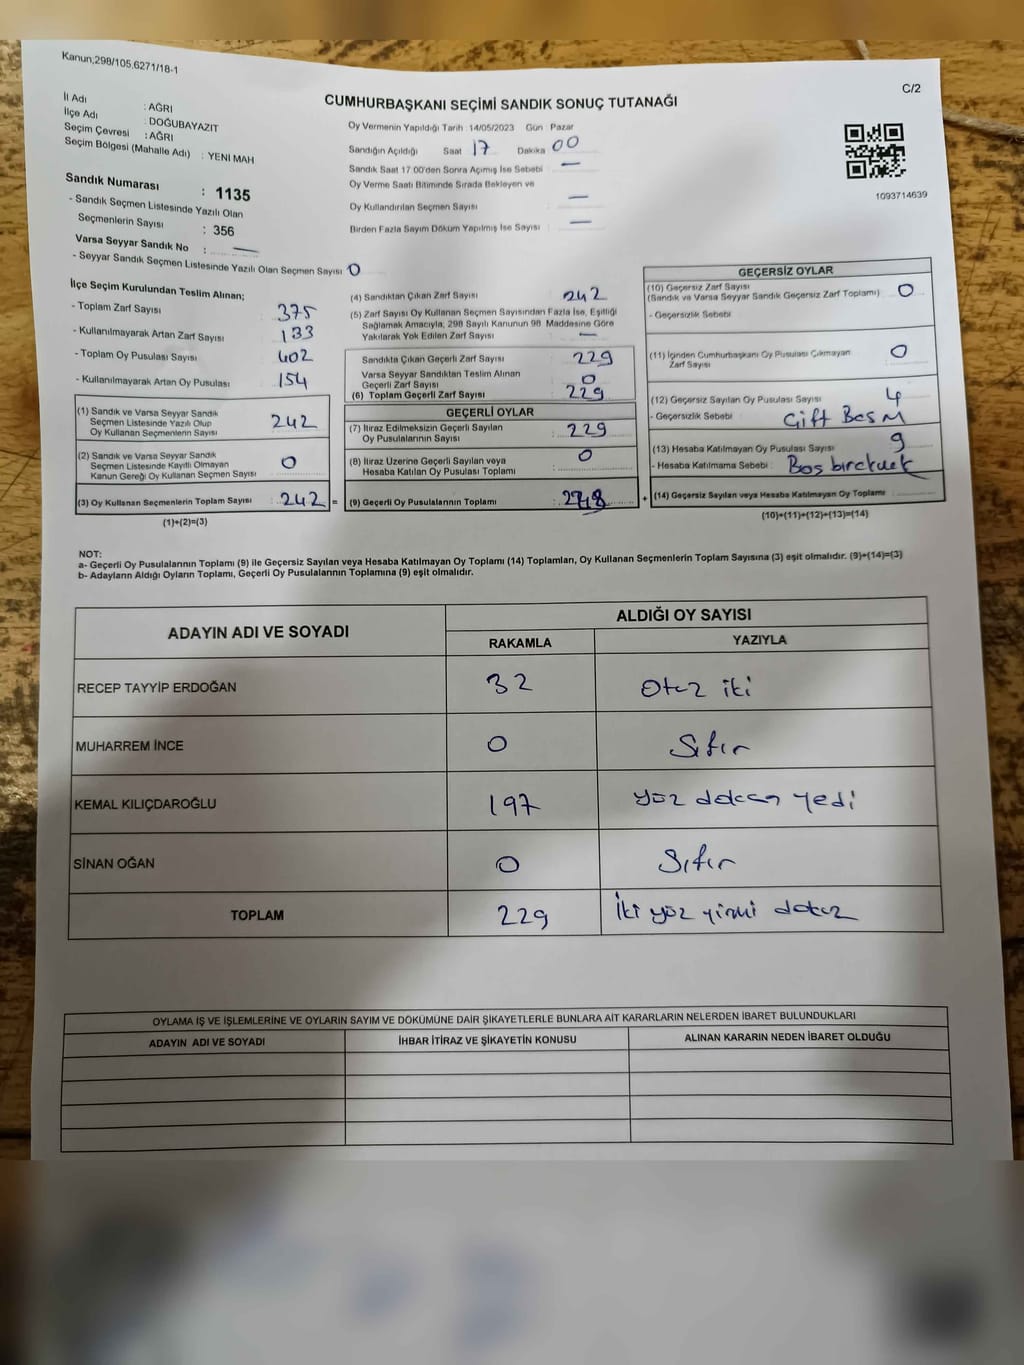 Kanun;298/105,6271/18-1
C/2
CUMHURBAŞKANI SEÇİMİ SANDIK SONUÇ TUTANAĞI
İl Adı : AĞRI
İlçe Adı : DOĞUBAYAZIT
Seçim Çevresi : AĞRI
Seçim Bölgesi (Mahalle Adı) : YENI MAH
Sandık Numarası : 1135
- Sandık Seçmen Listesinde Yazılı Olan
Seçmenlerin Sayısı : 356
Varsa Seyyar Sandık No : —
- Seyyar Sandık Seçmen Listesinde Yazılı Olan Seçmen Sayısı 0
Oy Vermenin Yapıldığı Tarih :14/05/2023 Gün : Pazar
Sandığın Açıldığı Saat 17 Dakika 00
Sandık Saat 17.00'den Sonra Açımış İse Sebebi : —
Oy Verme Saati Bitiminde Sırada Bekleyen ve
Oy Kullandırılan Seçmen Sayısı : —
Birden Fazla Sayım Döküm Yapılmış İse Sayısı : —
1093714639
İlçe Seçim Kurulundan Teslim Alınan;
- Toplam Zarf Sayısı 375
- Kullanılmayarak Artan Zarf Sayısı 133
- Toplam Oy Pusulası Sayısı 402
- Kullanılmayarak Artan Oy Pusulası 154
(1) Sandık ve Varsa Seyyar Sandık
Seçmen Listesinde Yazılı Olup
Oy Kullanan Seçmenlerin Sayısı 242
(2) Sandık ve Varsa Seyyar Sandık
Seçmen Listesinde Kayıtlı Olmayan
Kanun Gereği Oy Kullanan Seçmen Sayısı 0
(3) Oy Kullanan Seçmenlerin Toplam Sayısı : 242 =
(1)+(2)=(3)
(4) Sandıktan Çıkan Zarf Sayısı 242
(5) Zarf Sayısı Oy Kullanan Seçmen Sayısından Fazla İse, Eşitliği
Sağlamak Amacıyla; 298 Sayılı Kanunun 98. Maddesine Göre
Yakılarak Yok Edilen Zarf Sayısı : —
Sandıkta Çıkan Geçerli Zarf Sayısı 229
Varsa Seyyar Sandıktan Teslim Alınan
Geçerli Zarf Sayısı 0
(6) Toplam Geçerli Zarf Sayısı 229
GEÇERLİ OYLAR
(7) İtiraz Edilmeksizin Geçerli Sayılan
Oy Pusulalarının Sayısı : 229
(8) İtiraz Üzerine Geçerli Sayılan veya
Hesaba Katılan Oy Pusulası Toplamı : 0
(9) Geçerli Oy Pusulalarının Toplamı : +
GEÇERSİZ OYLAR
(10) Geçersiz Zarf Sayısı
(Sandık ve Varsa Seyyar Sandık Geçersiz Zarf Toplamı) : 0
- Geçersizlik Sebebi :
(11) İçinden Cumhurbaşkanı Oy Pusulası Çıkmayan
Zarf Sayısı : 0
(12) Geçersiz Sayılan Oy Pusulası Sayısı : 4
- Geçersizlik Sebebi : Çift Basm
(13) Hesaba Katılmayan Oy Pusulası Sayısı : 9
- Hesaba Katılmama Sebebi : Boş bırakmak
(14) Geçersiz Sayılan veya Hesaba Katılmayan Oy Toplamı :
(10)+(11)+(12)+(13)=(14)
NOT:
a- Geçerli Oy Pusulalarının Toplamı (9) ile Geçersiz Sayılan veya Hesaba Katılmayan Oy Toplamı (14) Toplamları, Oy Kullanan Seçmenlerin Toplam Sayısına (3) eşit olmalıdır. (9)+(14)=(3)
b- Adayların Aldığı Oyların Toplamı, Geçerli Oy Pusulalarının Toplamına (9) eşit olmalıdır.
ADAYIN ADI VE SOYADI ALDIĞI OY SAYISI
RAKAMLA YAZIYLA
RECEP TAYYİP ERDOĞAN 32 Otuz iki
MUHARREM İNCE 0 Sıfır
KEMAL KILIÇDAROĞLU 197 yüz doksan yedi
SİNAN OĞAN 0 Sıfır
TOPLAM 229 İki yüz yirmi dokuz
OYLAMA İŞ VE İŞLEMLERİNE VE OYLARIN SAYIM VE DÖKÜMÜNE DAİR ŞİKAYETLERLE BUNLARA AİT KARARLARIN NELERDEN İBARET BULUNDUKLARI
ADAYIN ADI VE SOYADI İHBAR İTİRAZ VE ŞİKAYETİN KONUSU ALINAN KARARIN NEDEN İBARET OLDUĞU